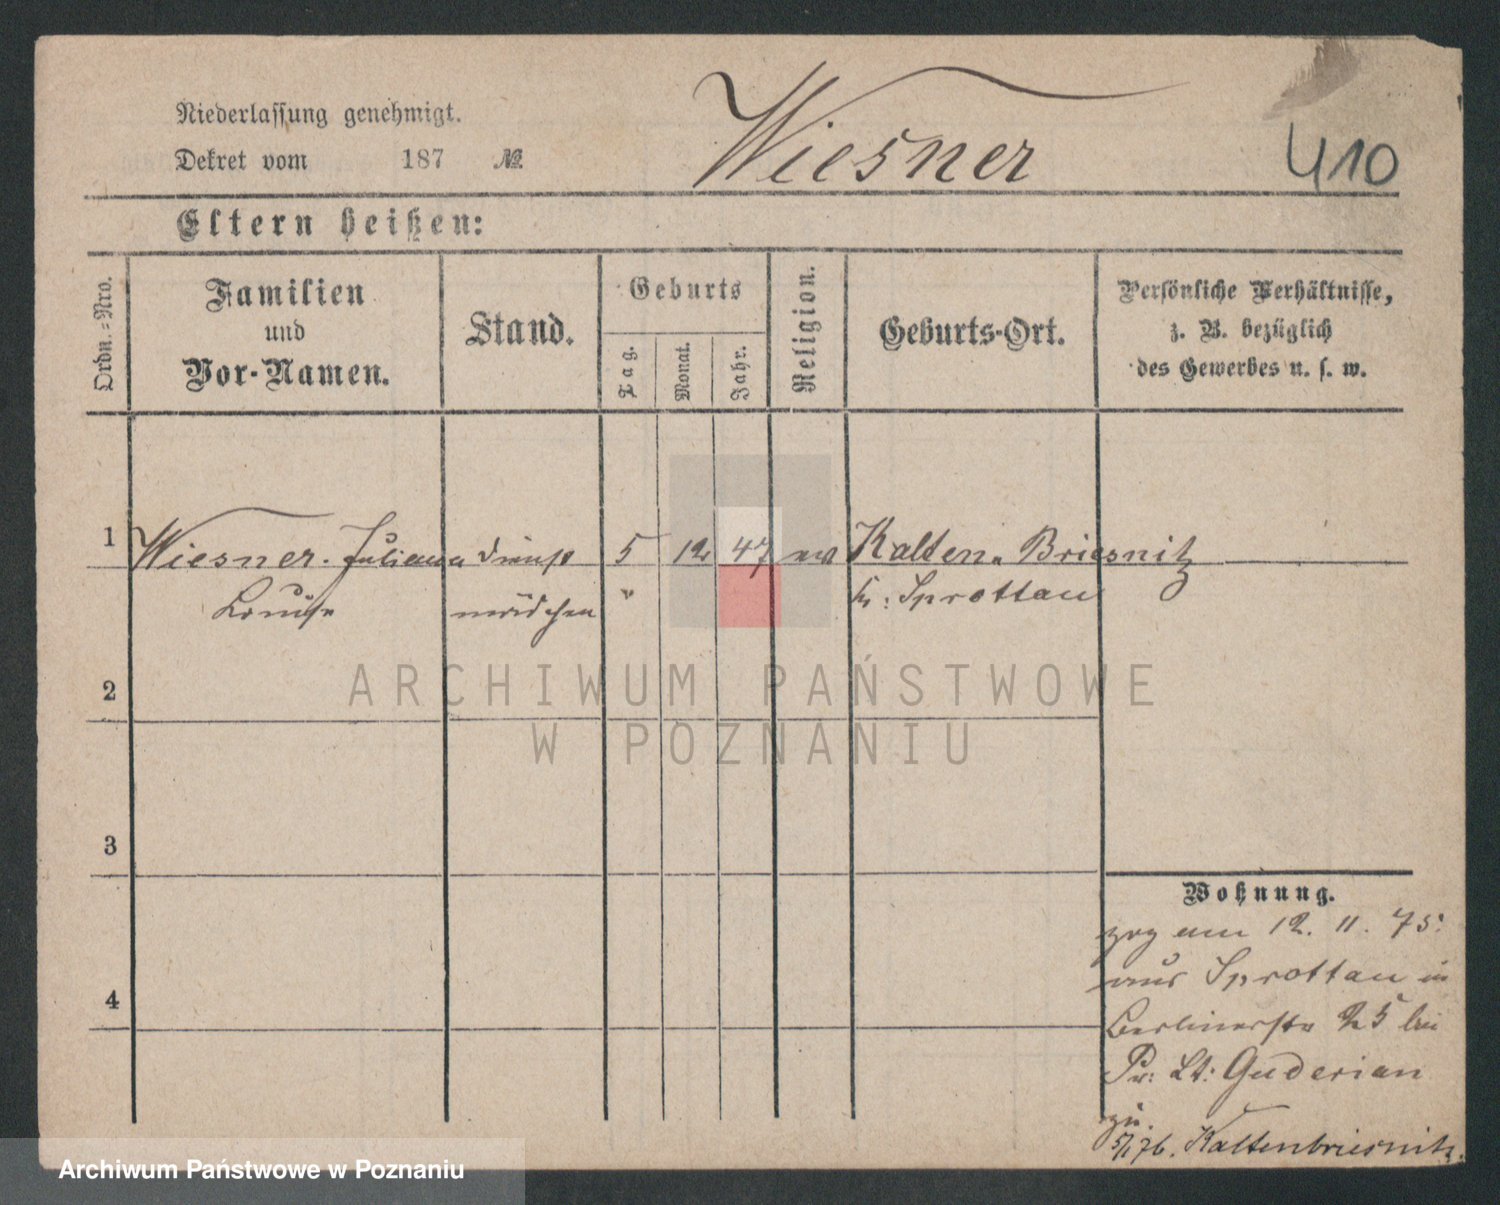 Niederlassung genehmigt.
Dekret vom 187 №
Wiesner
410
Eltern heißen:
Ordn.-Nro.
Familien
und
Vor-Namen.
Stand.
Geburts
Tag.
Monat.
Jahr.
Religion.
Geburts-Ort.
Persönliche Verhältnisse,
z. B. bezüglich
des Gewerbes u. s. w.
1 Wiesner. Juliana Dienst 5 12 47 Kalten Briesnitz
Louise mädchen " Kr: Sprottau
2
ARCHIWUM PAŃSTWOWE
W POZNANIU
3
Wohnung.
zog am 12. 11. 75.
aus Sprottau
4
Berlinerstr 25 bei
Pr: Lt: Guderian
zu.
5/1 76. Kaltenbriesnitz.
Archiwum Państwowe w Poznaniu